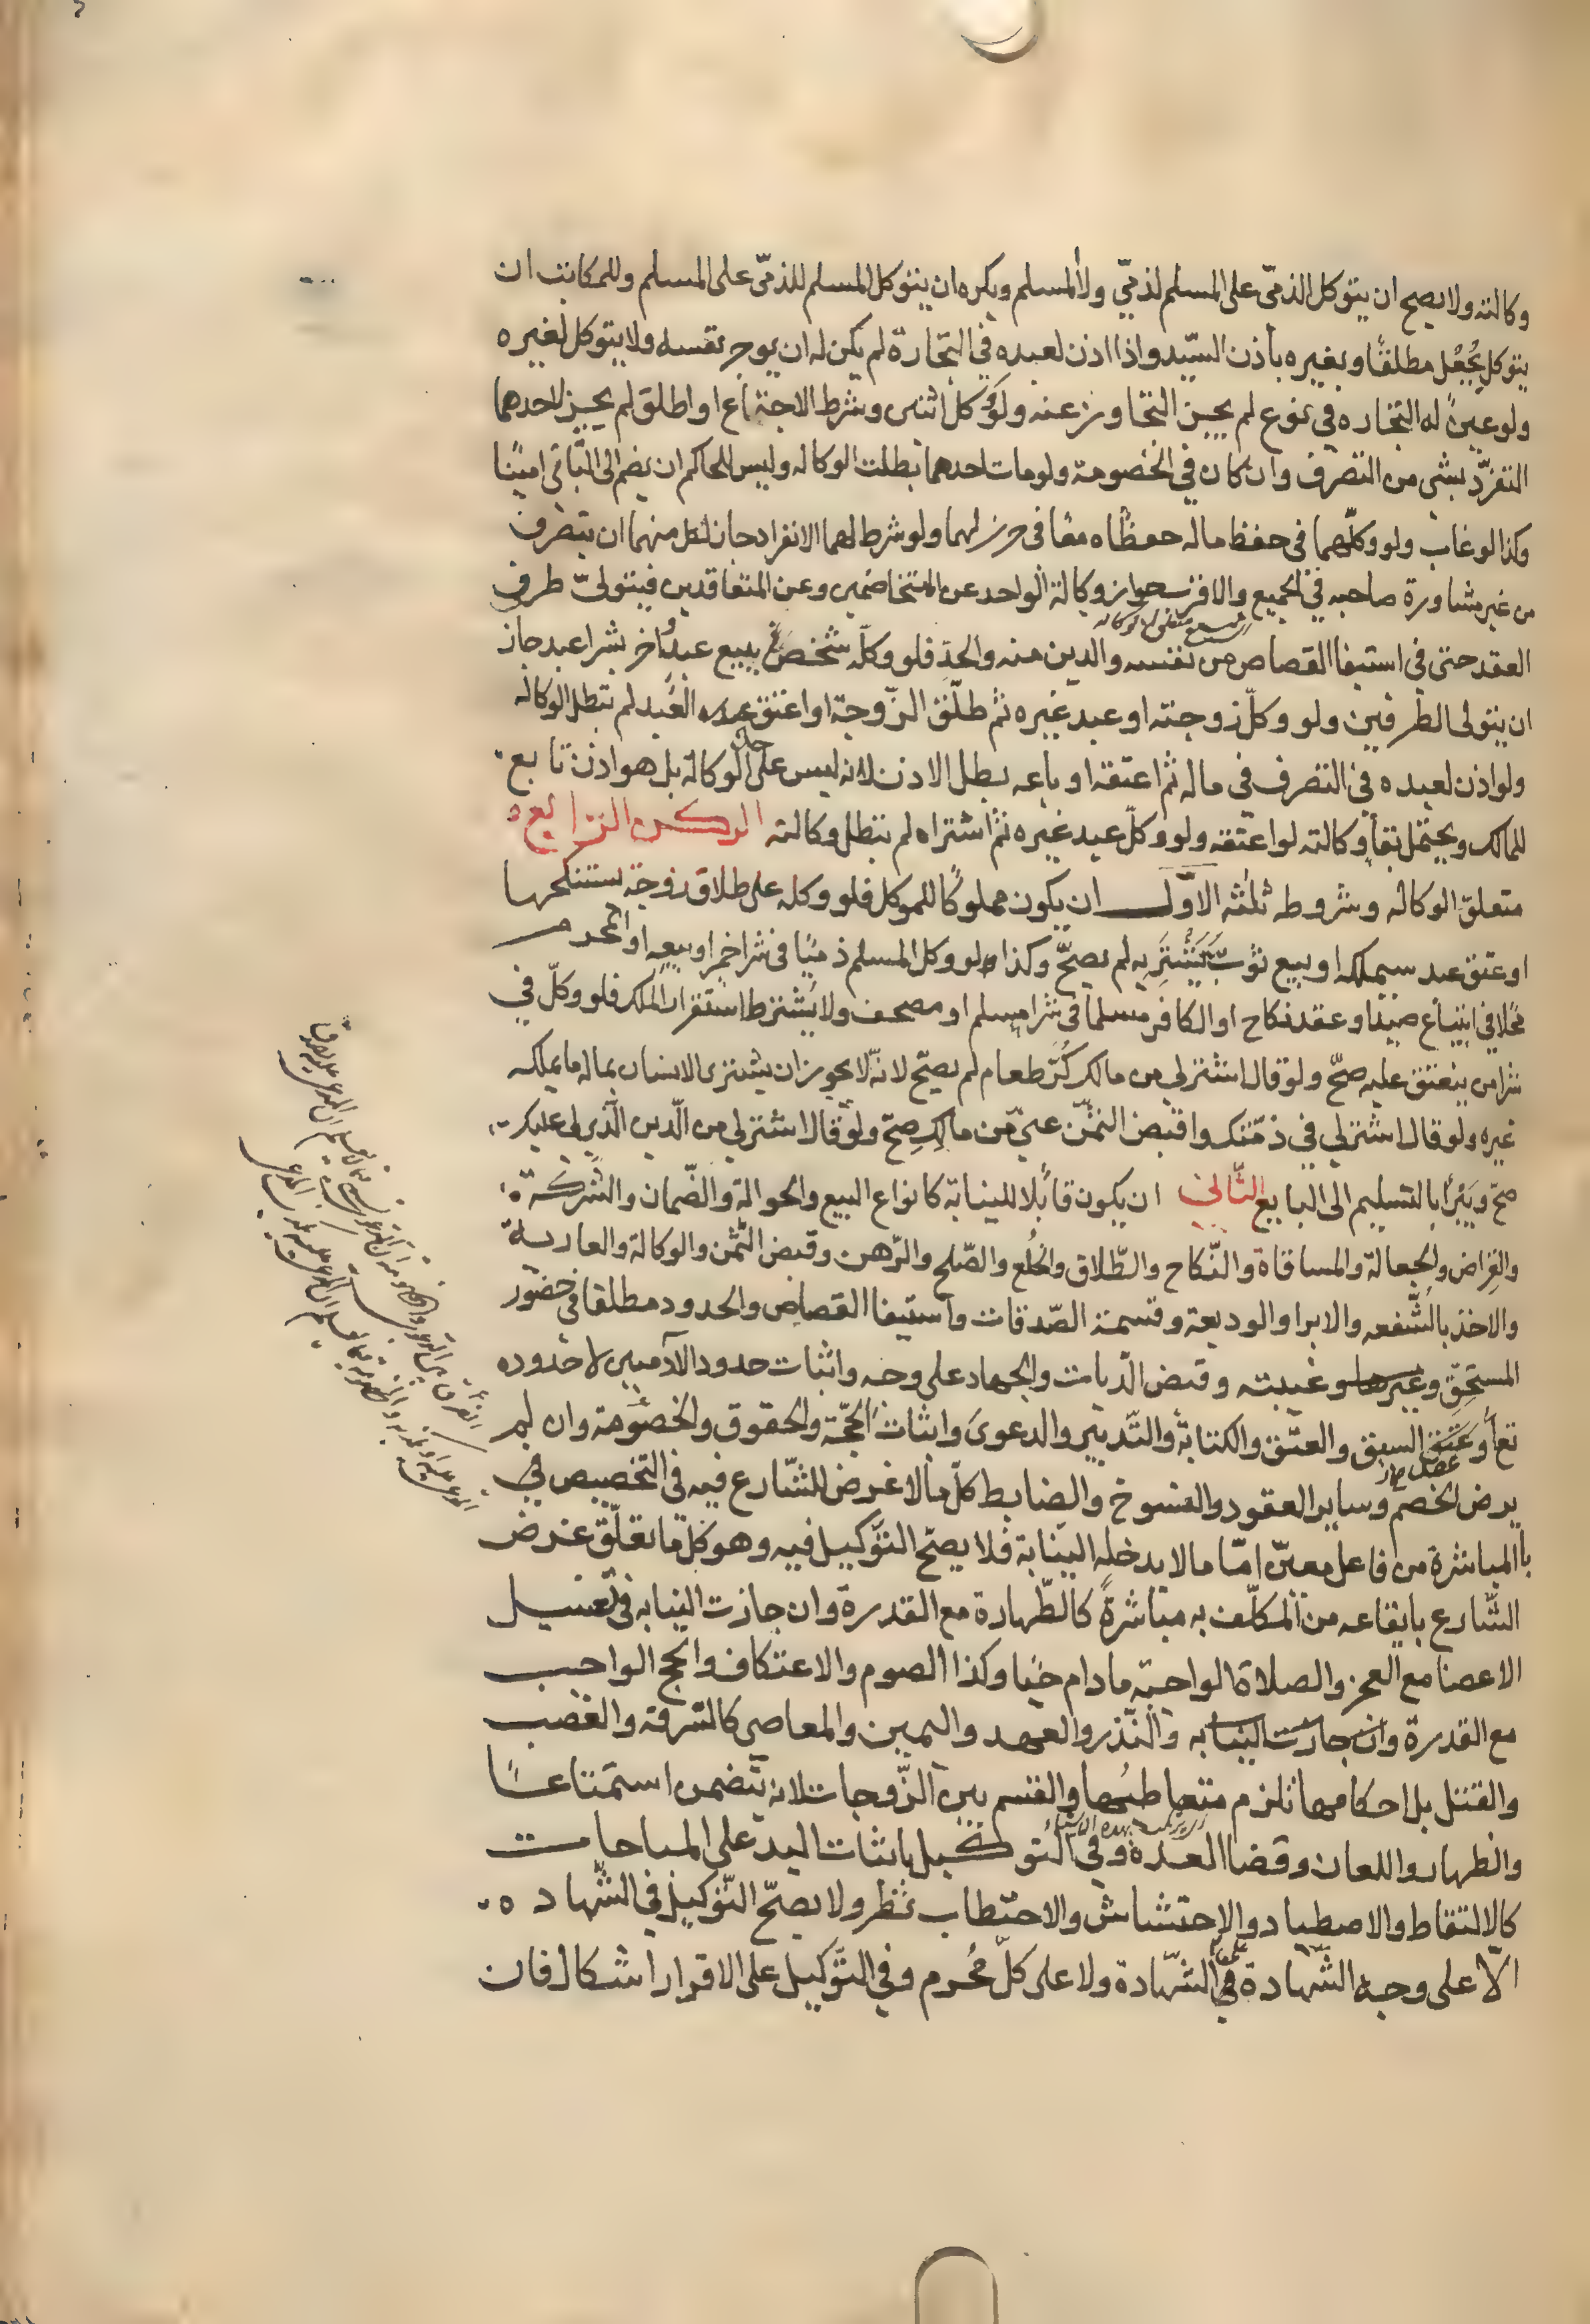 وكالته ولا يصح ان يتوكل الذمّى على المسلم لذمّيّ ولا لمسلم ويكره ان يتوكل المسلم للذمّى على المسلم وللمكاتب ان
يتوكل بجُعْل مطلقًا وبغيره بأذن السّيد واذا اذن لعبده في التجارة لم يكن له ان يوجر نفسه ولا يتوكل لغيره
ولو عيّن له التجاره في نوع لم يجز التجاوز عنه ولو وكل اثنين وشرط الاجتماع او اطلق لم يجز لاحدهما
التفرّد بشى من التصرف وان كان في الخصومة ولو مات احدهما بطلت الوكاله وليس للحاكم ان يضم الى الباقى امينًا
وكذا لو غاب ولو وكلهما فى حفظ ماله حفظاه معًا فى حرز لهما ولو شرط لهما الانفراد جاز لكل منهما ان يتصرف
من غير مشاورة صاحبه في الجميع والاقرب جواز وكالة الواحد عن المتخاصمين وعن المتعاقدين فيتولىّ طرفى
العقد حتى فى استيفا القصاص من نفسه والدين منه والحدّ فلو وكلّه شخص ببيع عبد واخر بشرا عبد جاز
ان يتولى الطرفين ولو وكلّ زوجته او عبد غيره ثم طلّق الزّوجة او اعتق العبد لم تبطل الوكاله
ولو اذن لعبده في التصرف في ماله ثم اعتقه او باعه بطل الاذن لانه ليس على حدّ الوكالة بل هو اذن تابع
للمالك ويحتمل بقأ وكالته لو اعتقه ولو وكلّ عبد غيره ثم اشتراه لم تبطل وكالته الركن الرابع ه
متعلق الوكاله وشروطه ثلثه الاوّل ان يكون مملوكًا للموكل فلو وكله على طلاق زوجة سينكحها
او عتق عبد سيملكه او بيع ثوب يشتريه لم يصحّ وكذا لو وكل المسلم ذميًا فى شرا خمر او بيعه او المحرم
محلا في ابتياع صيد او عقد نكاح او الكافر مسلما فى شرا مسلم او مصحف ولا يشترط استقرار الملك فلو وكلّ في
شرا من ينعتق عليه صحّ ولو قال اشتر لي من مالك كُرّ طعام لم يصحّ لانّه لا يجوز ان يشترى الانسان بماله ما يملكه
غيره ولو قال اشتر لي في ذمّتك واقبض الثمن عنّي من مالك صحّ ولو قال اشتر لي من الدّين الّذي لي عليك
صحّ ويبرأ بالتسليم الى البايع الثّاني ان يكون قابلا للنيابة كانواع البيع والحوالة والضّمان والشركة
والقراض والجعالة والمساقاة والنّكاح والطّلاق والخُلع والصّلح والرّهن وقبض الثّمن والوكالة والعارية
والاخذ بالشّفعه والابرا والوديعة وقسمة الصّدقات واستيفا القصاص والحدود مطلقا فى حضور
المستحِقّ وغيبته وقبض الدّيات والجهاد على وجه واثبات حدود الآدميين لا حدوده
تع وعقد السبق والعتق والكتابة والتّدبير والدعوى واثبات الحجّة والحقوق والخصومة وان لم
يرض الخصم وساير العقود والفسوخ والضابط كلّ ما لا غرض للشّارع فيه فى التخصيص في
بالمباشرة من فاعل معيّن امّا ما لا يدخله النيابة فلا يصحّ التّوكيل فيه وهو كل ما تعلّق غرض
الشّارع بايقاعه من المكلّف به مباشرةً كالطّهارة مع القدرة وان جازت النيابه فى تغسيل
الاعضا مع العجز والصلاة الواجبة ما دام حيًا وكذا الصوم والاعتكاف والحج الواجب
مع القدرة وان جازت النيابه والنّذر والعهد واليمين والمعاصى كالسّرقة والغصب
والقتل بل احكامها تلزم متعاطيها والقسم بين الزّوجات لانه يتضمن استمتاعًا
والظهار واللعان وقضا العدة وفي التوكيل باثبات اليد على المباحات
كالالتقاط والاصطياد والاحتشاش والاحتطاب نظر ولا يصحّ التّوكيل في الشّهاد ه
الاّ على وجه الشّهادة على الشّهادة ولا على كلّ محُرم وفي التّوكيل على الاقرار اشكال فان